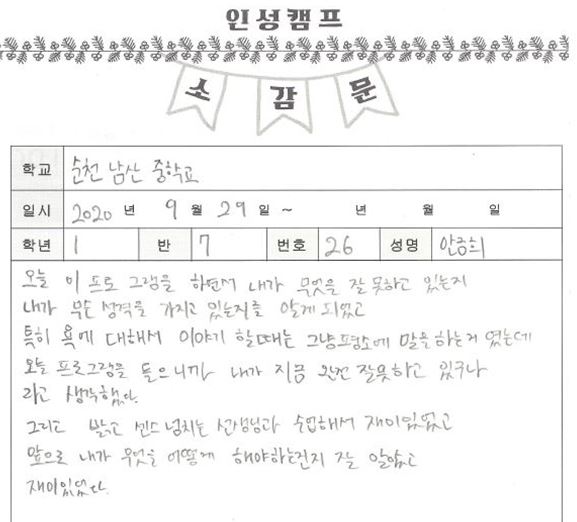 인성캠프
소감문
학교 순천 남산 중학교
일시 2020 년 9 월 29 일 ~ 년 월 일
학년 1 반 7 번호 26 성명 안금희
오늘 이 프로 그램을 하면서 내가 무엇을 잘 못하고 있는지
내가 무슨 성격을 가지고 있는지를 알게 되었고
특히 욕에 대해서 이야기 할때는 그냥 평소에 말을 하는거 였는데
오늘 프로그램을 들으니까 내가 지금 완전 잘못하고 있구나
라고 생각했다.
그리고 밝고 센스 넘치는 선생님과 수업해서 재미있었고
앞으로 내가 무엇을 어떻게 해야하는건지 잘 알았고
재미있었다.